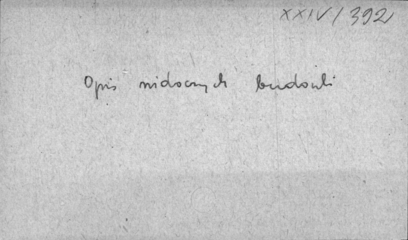 XXIV/392
Opis widocznych budowli